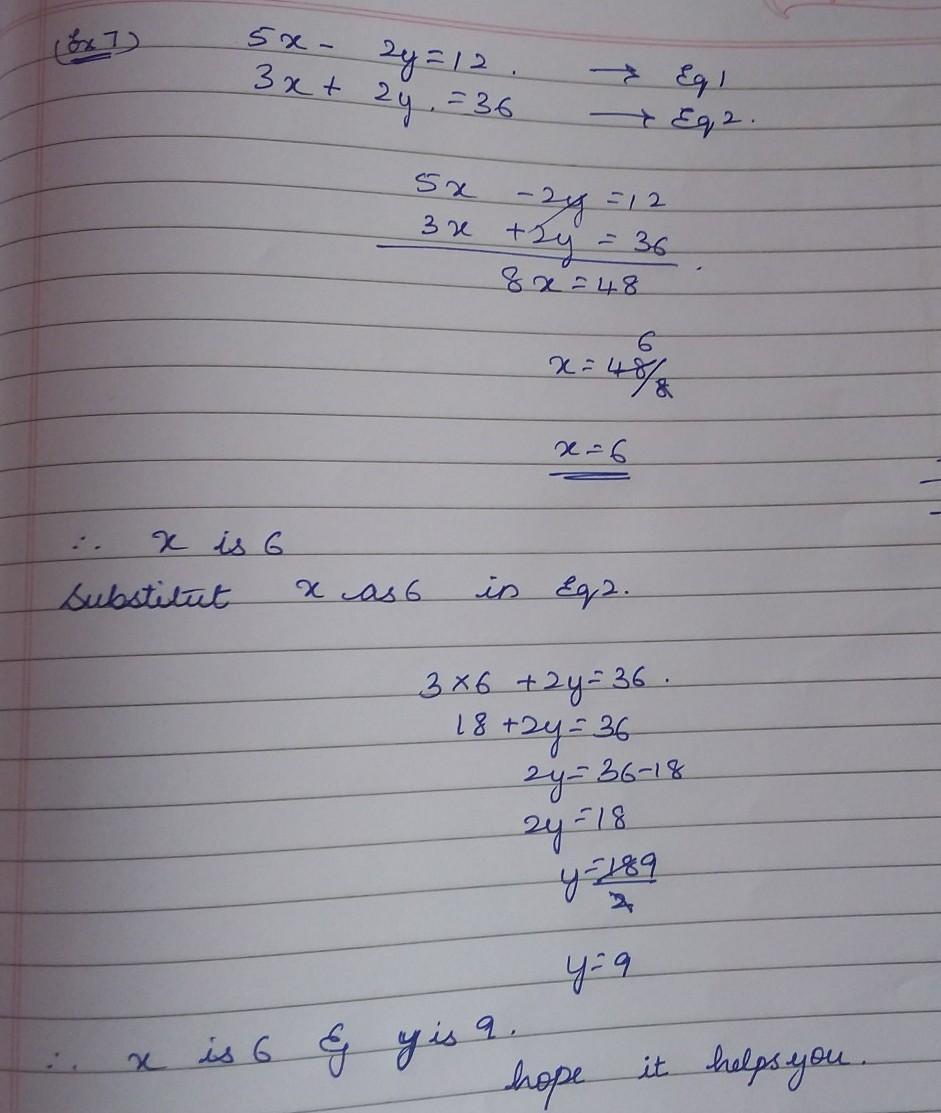 (Ex 7) 5x - 2y = 12. → Eq 1
3x + 2y. = 36 → Eq 2.
5x - 2y = 12
3x + 2y = 36
8x = 48
6
x = 48/8
x = 6
∴ x is 6
Substitut x as 6 in Eq 2.
3 × 6 + 2y = 36.
18 + 2y = 36
2y = 36 - 18
2y = 18
y = 18 9
2
y = 9
∴ x is 6 & y is 9.
hope it helps you.